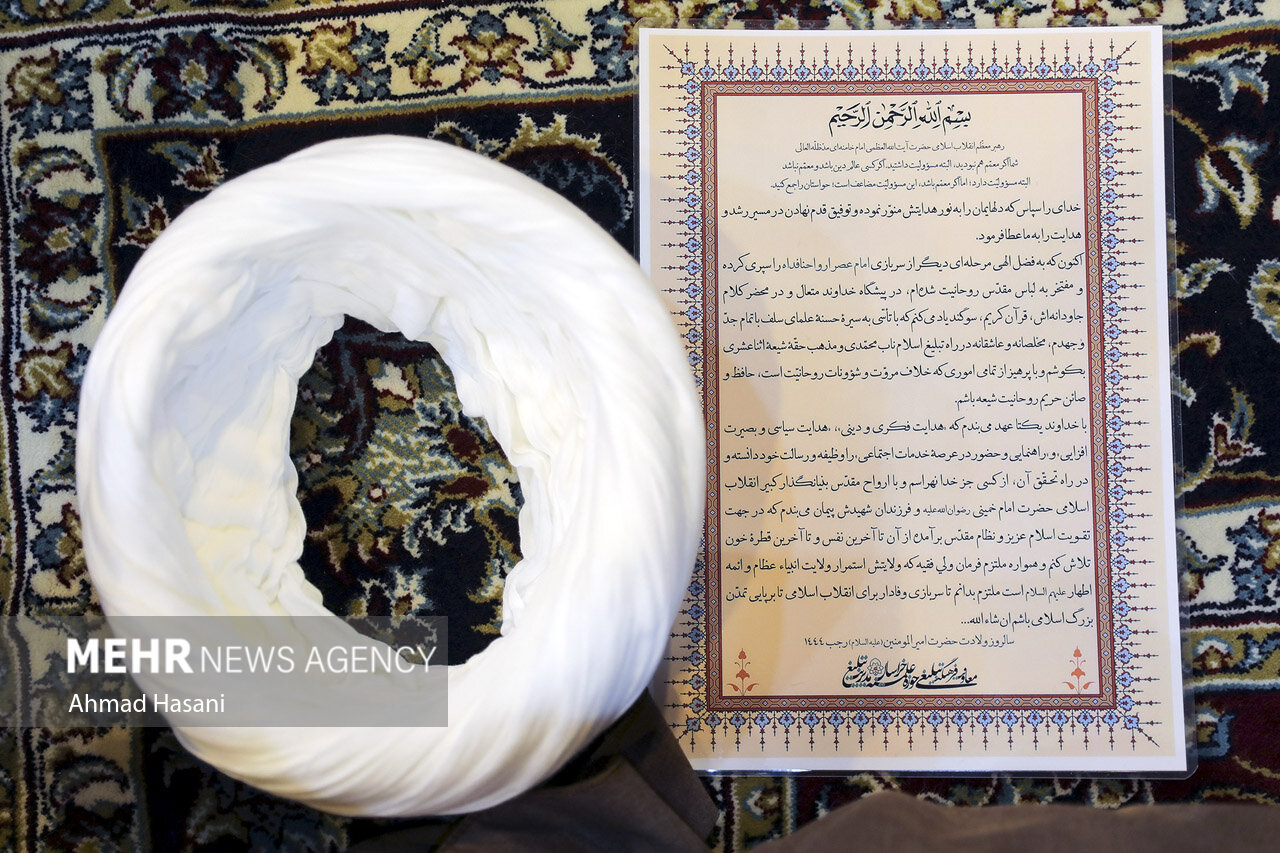 بِسْمِ اللهِ الرَّحْمٰنِ الرَّحِيمِ
رهبر معظّم انقلاب اسلامی حضرت آیت الله العظمی امام خامنه ای مدّظلّه العالی
شما اگر معمّم هم نبودید، البته مسؤولیت داشتید. اگر کسی عالم دین باشد و معمّم نباشد
البته مسؤولیّت دارد؛ امّا اگر معمّم باشد، این مسؤولیّت مضاعف است؛ حواستان را جمع کنید.
خدای را سپاس که دلهایمان را به نور هدایتش منوّر نموده و توفیق قدم نهادن در مسیر رشد و
هدایت را به ما عطا فرمود.
اکنون که به فضل الهی مرحله ای دیگر از سربازی امام عصر ارواحنا فداه را سپری کرده
و مفتخر به لباس مقدّس روحانیت شده‌ام، در پیشگاه خداوند متعال و در محضر کلام
جاودانه‌اش، قرآن کریم، سوگند یاد می‌کنم که با تأسّی به سیرهٔ حسنهٔ علمای سلف با تمام جدّ
و جهدم، مخلصانه و عاشقانه در راه تبلیغ اسلام ناب محمّدی و مذهب حقّهٔ شیعهٔ اثناعشری
بکوشم و با پرهیز از تمامی اموری که خلاف مروّت و شؤونات روحانیّت است، حافظ و
صائن حریم روحانیت شیعه باشم.
با خداوند یکتا عهد می‌بندم که «هدایت فکری و دینی»، «هدایت سیاسی و بصیرت
افزایی» و «راهنمایی و حضور در عرصهٔ خدمات اجتماعی» را وظیفه و رسالت خود دانسته و
در راه تحقّق آن، از کسی جز خدا نهراسم و با ارواح مقدّس بنیانگذار کبیر انقلاب
اسلامی حضرت امام خمینی رضوان الله علیه و فرزندان شهیدش پیمان می‌بندم که در جهت
تقویت اسلام عزیز و نظام مقدّس برآمده از آن تا آخرین نفس و تا آخرین قطرهٔ خون
تلاش کنم و همواره ملتزم فرمان ولی فقیه که ولایتش استمرار ولایت انبیاء عظام و ائمه
اطهار علیهم السلام است ملتزم بدانم تا سربازی وفادار برای انقلاب اسلامی تا برپایی تمدّن
بزرگ اسلامی باشم ان شاء الله...
سالروز ولادت حضرت امیرالمومنین (علیه السلام) رجب ۱۴۴۴
معاونت فرهنگی تبلیغی حوزه علمیه خراسان
MEHR NEWS AGENCY
Ahmad Hasani